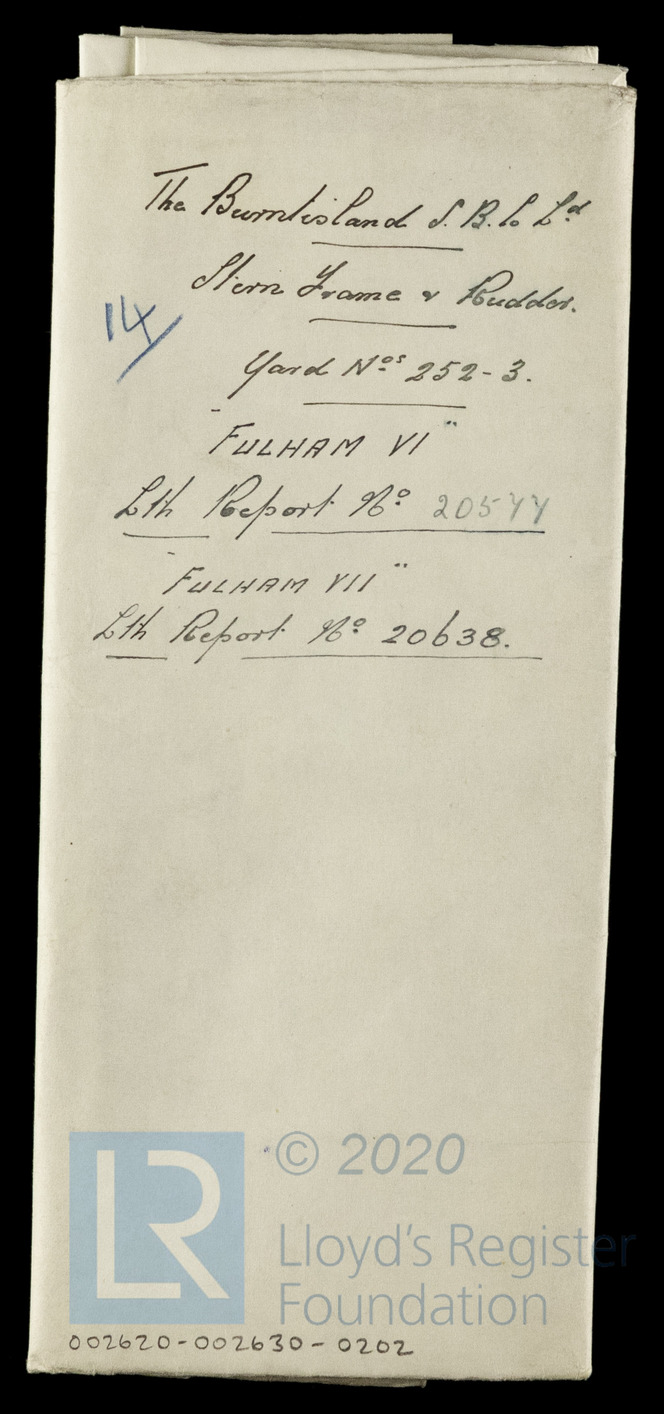 The Burntisland S.B. Co Ld
Stern Frame & Rudder.
14
Yard Nos 252-3.
"FULHAM VI"
Lth Report No 20577
"FULHAM VII"
Lth Report No 20638.
LR
© 2020
Lloyd's Register
Foundation
002620-002630-0202